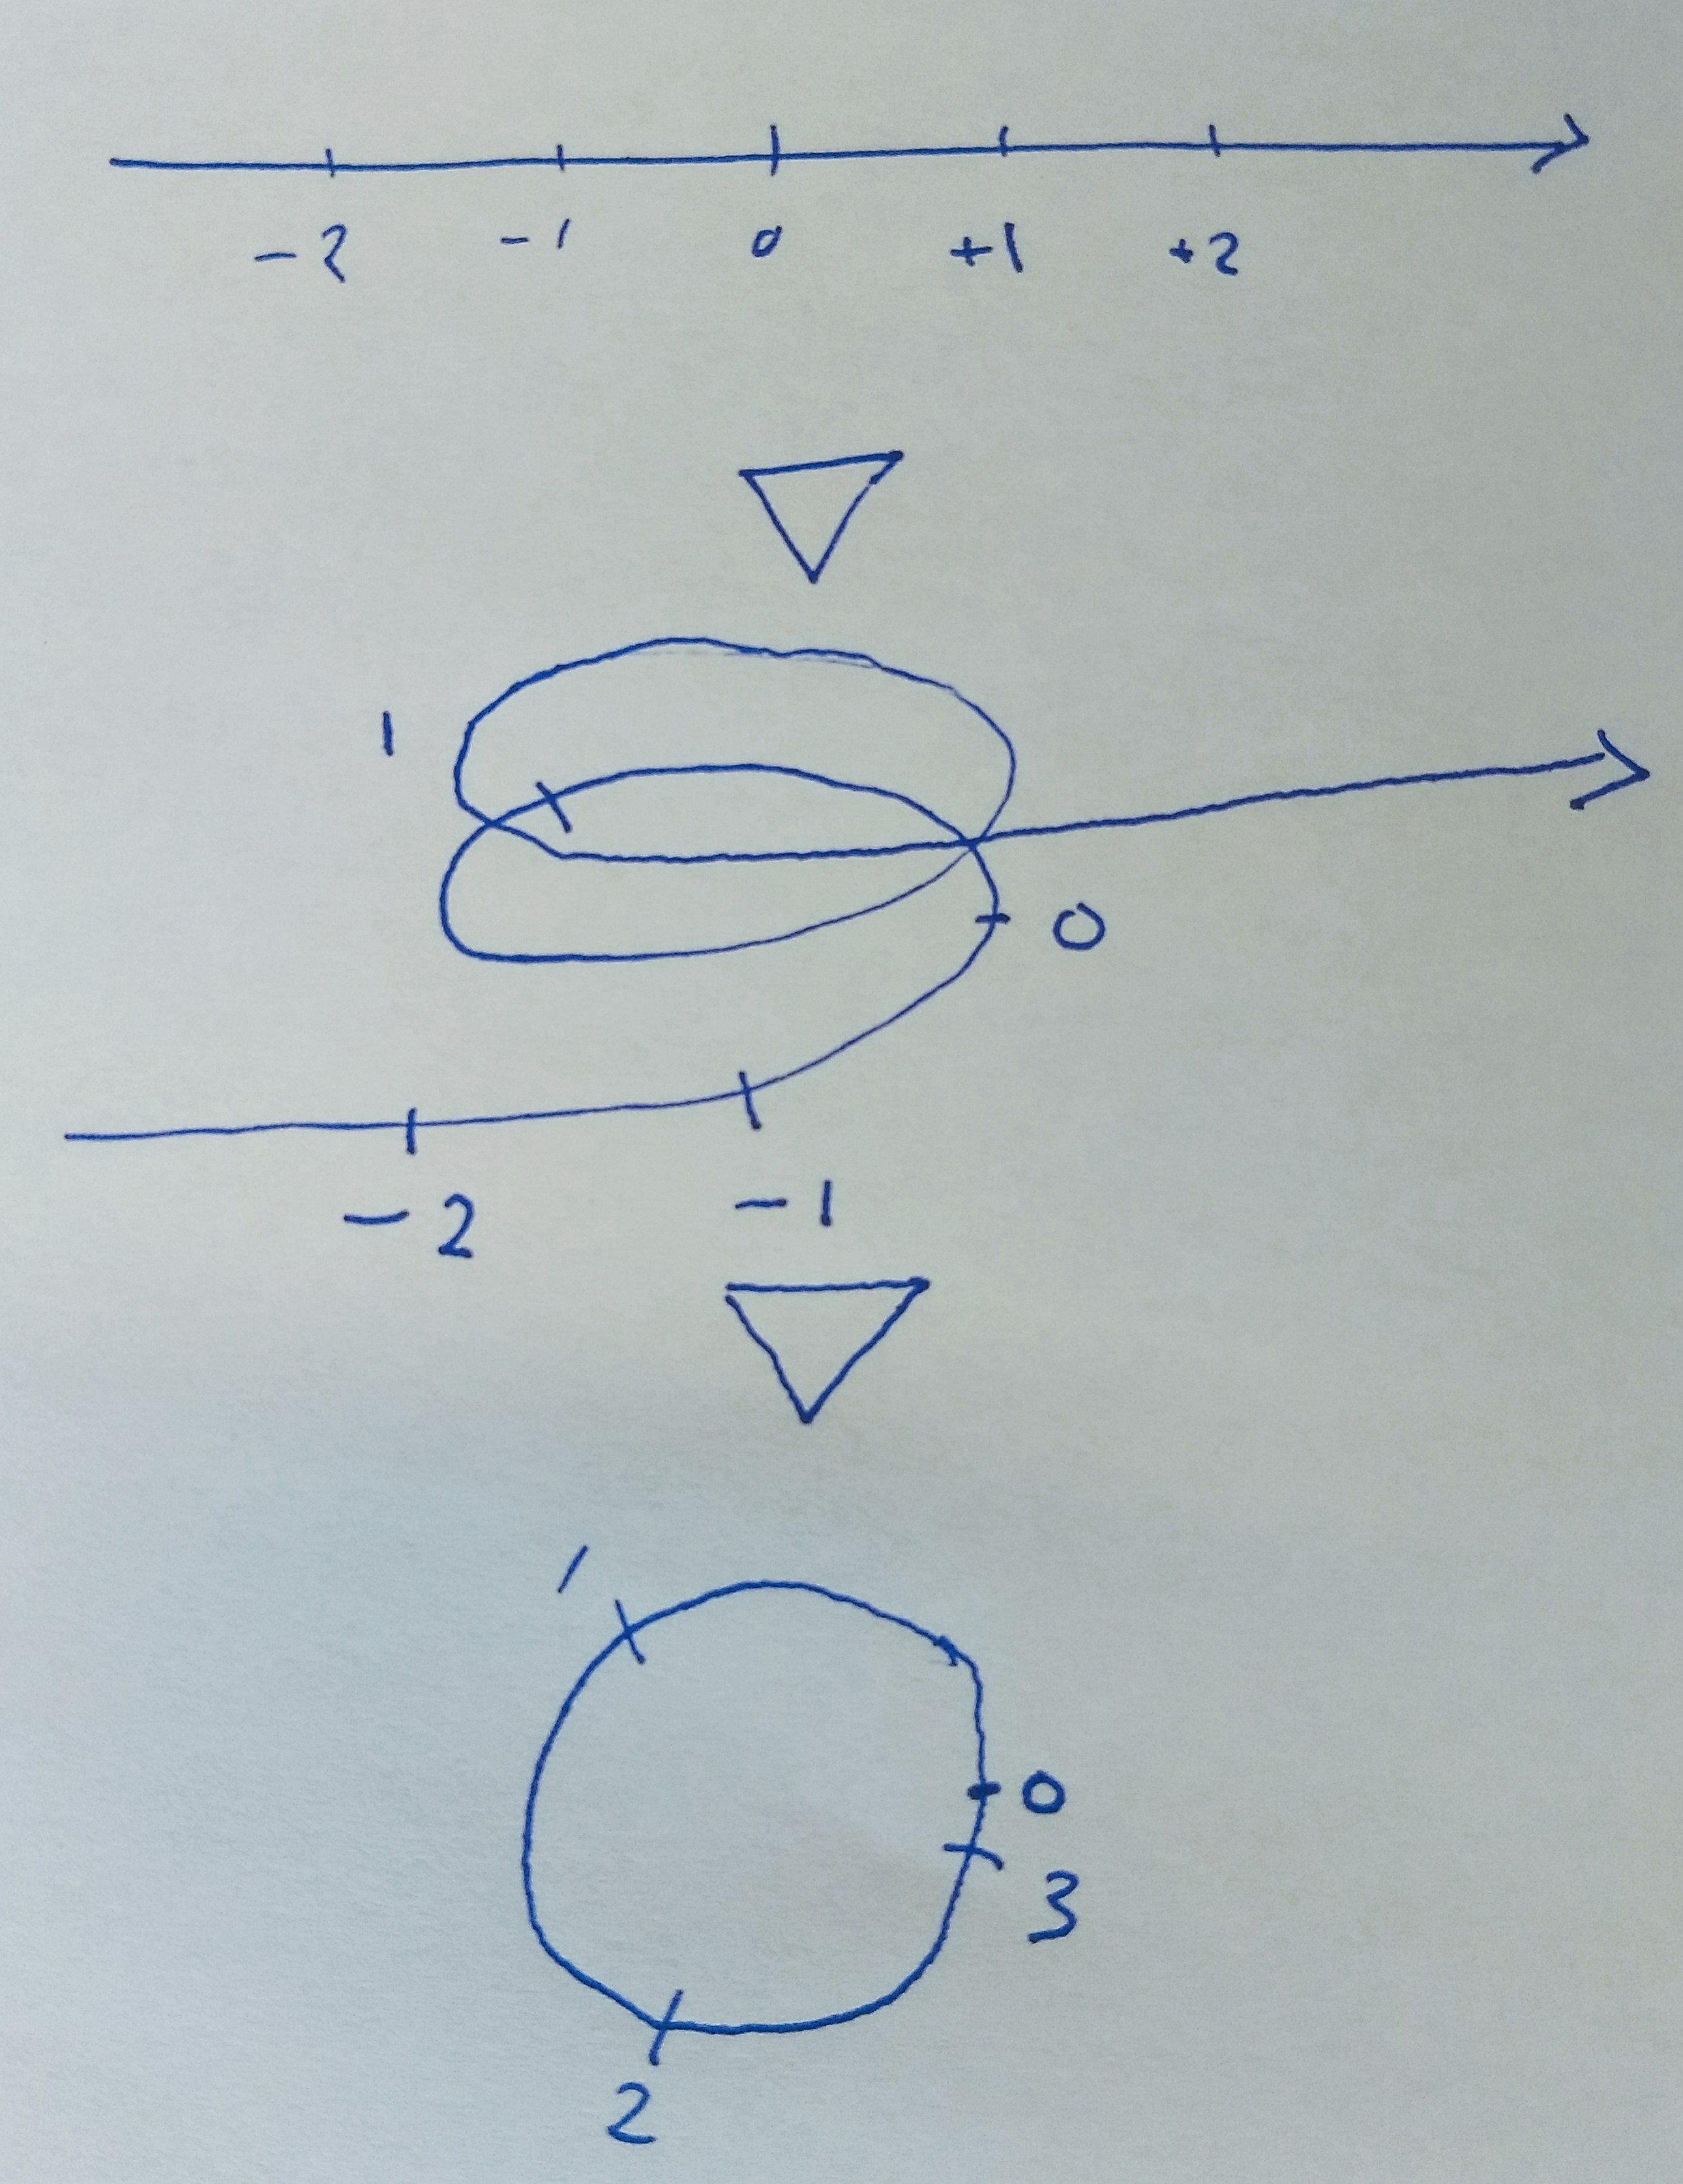 -2 -1 0 +1 +2
1
0
-2 -1
1
0
3
2